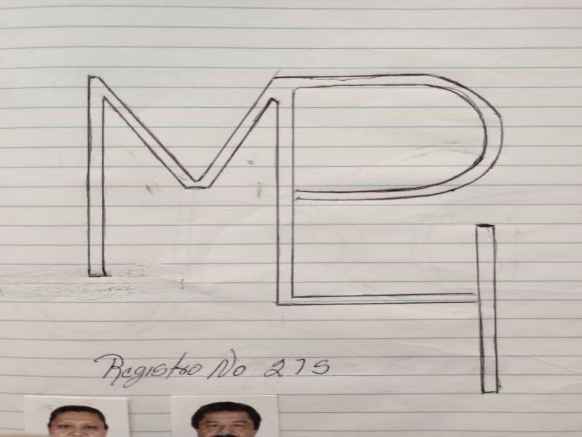 MP4
Registro No 275